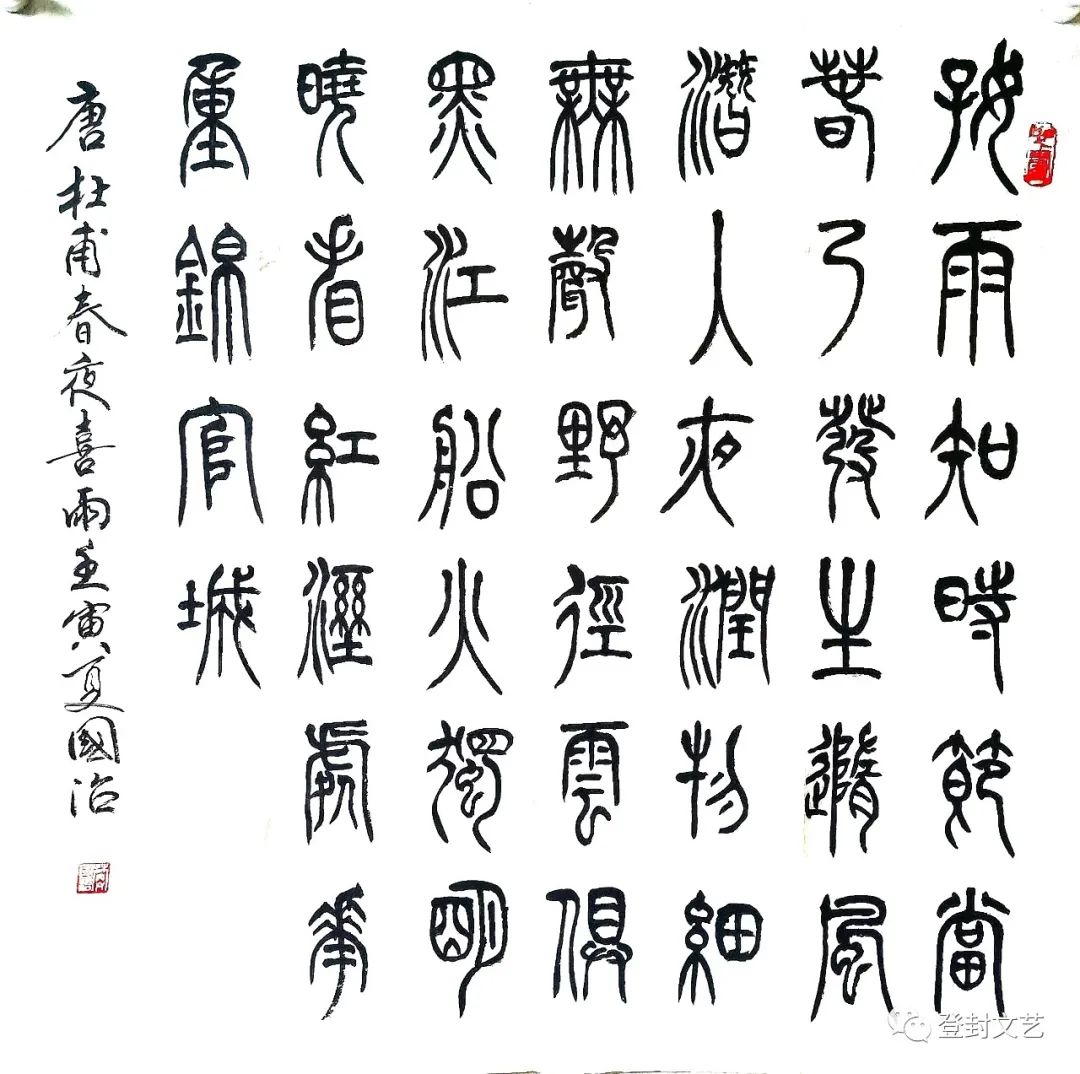 好雨知時節當
春乃發生隨風
潛入夜潤物細
無聲野徑雲俱
黑江船火獨明
曉看紅溼處華
重錦官城
唐杜甫春夜喜雨壬寅夏國治
登封文艺